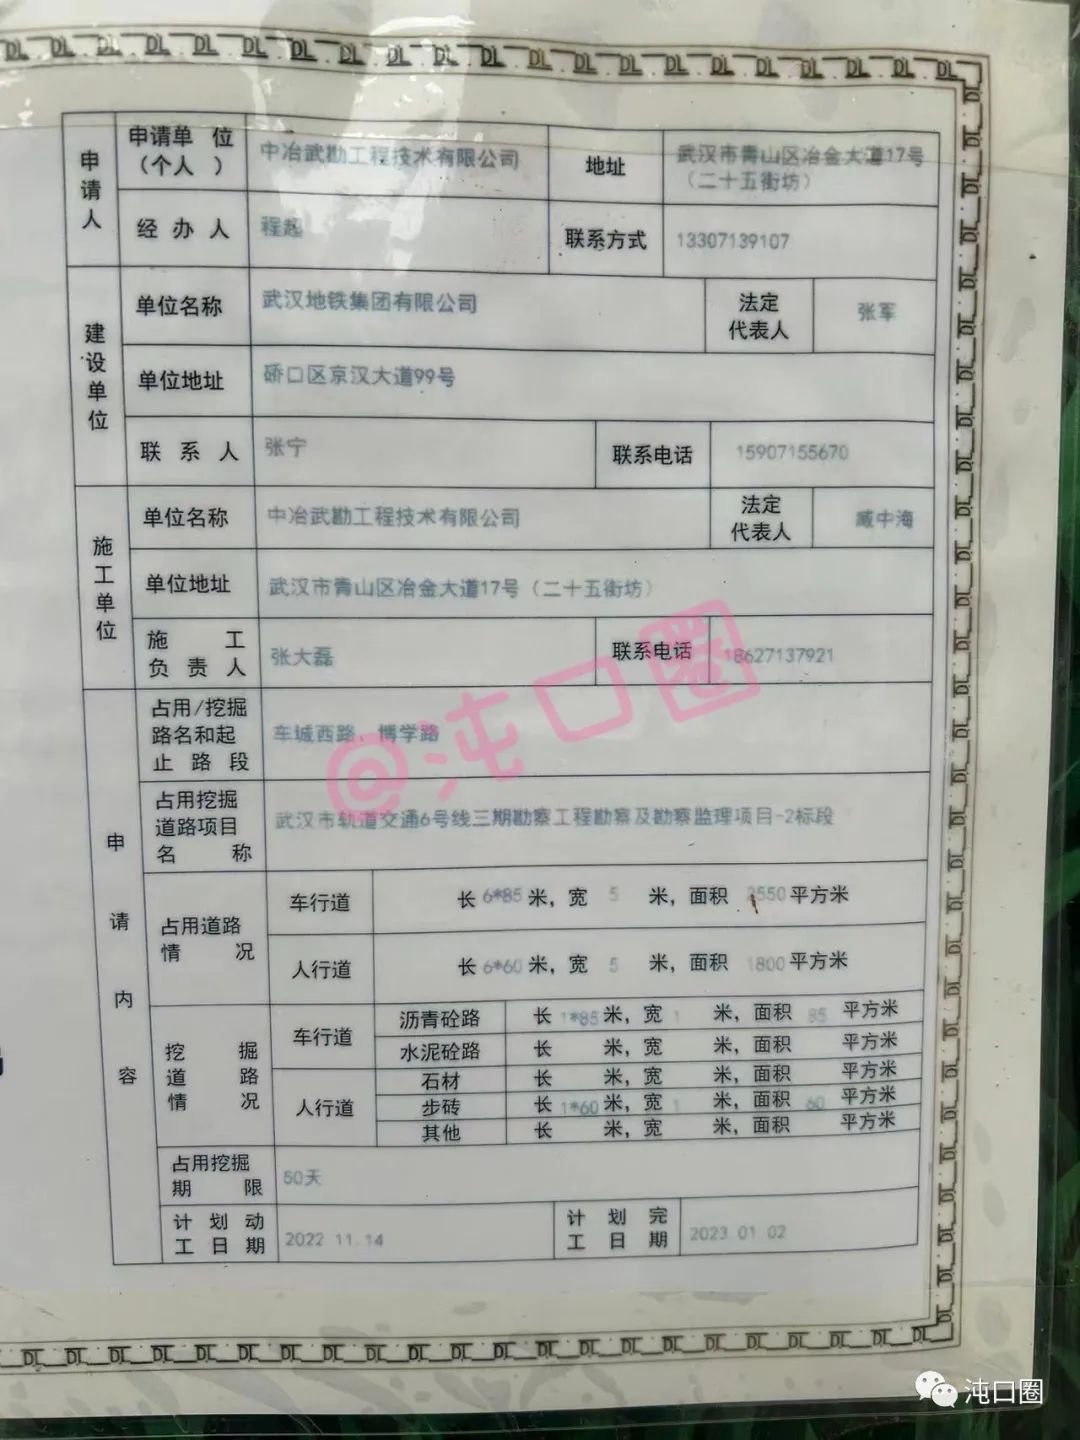 申请人
申请单 位
（个人 ）
中冶武勘工程技术有限公司
地址
武汉市青山区冶金大道17号
（二十五街坊）
经 办 人
程起
联系方式
13307139107
建设单位
单位名称
武汉地铁集团有限公司
法定
代表人
张军
单位地址
硚口区京汉大道99号
联 系 人
张宁
联系电话
15907155670
施工单位
单位名称
中冶武勘工程技术有限公司
法定
代表人
臧中海
单位地址
武汉市青山区冶金大道17号（二十五街坊）
施 工
负 责 人
张大磊
联系电话
18627137921
申请内容
占用/挖掘
路名和起
止 路 段
车城西路、博学路
占用挖掘
道路项目
名 称
武汉市轨道交通6号线三期勘察工程勘察及勘察监理项目-2标段
占用道路
情 况
车行道
长 6*85 米，宽 5 米，面积 2550 平方米
人行道
长 6*60 米，宽 5 米，面积 1800 平方米
挖 掘
道 路
情 况
车行道
沥青砼路
长 1*85 米，宽 1 米，面积 85 平方米
水泥砼路
长 米，宽 米，面积 平方米
人行道
石材
长 米，宽 米，面积 平方米
步砖
长 1*60 米，宽 1 米，面积 60 平方米
其他
长 米，宽 米，面积 平方米
占用挖掘
期 限
50天
计 划 动
工 日 期
2022 11 14
计 划 完
工 日 期
2023 01 02
@沌口圈
沌口圈